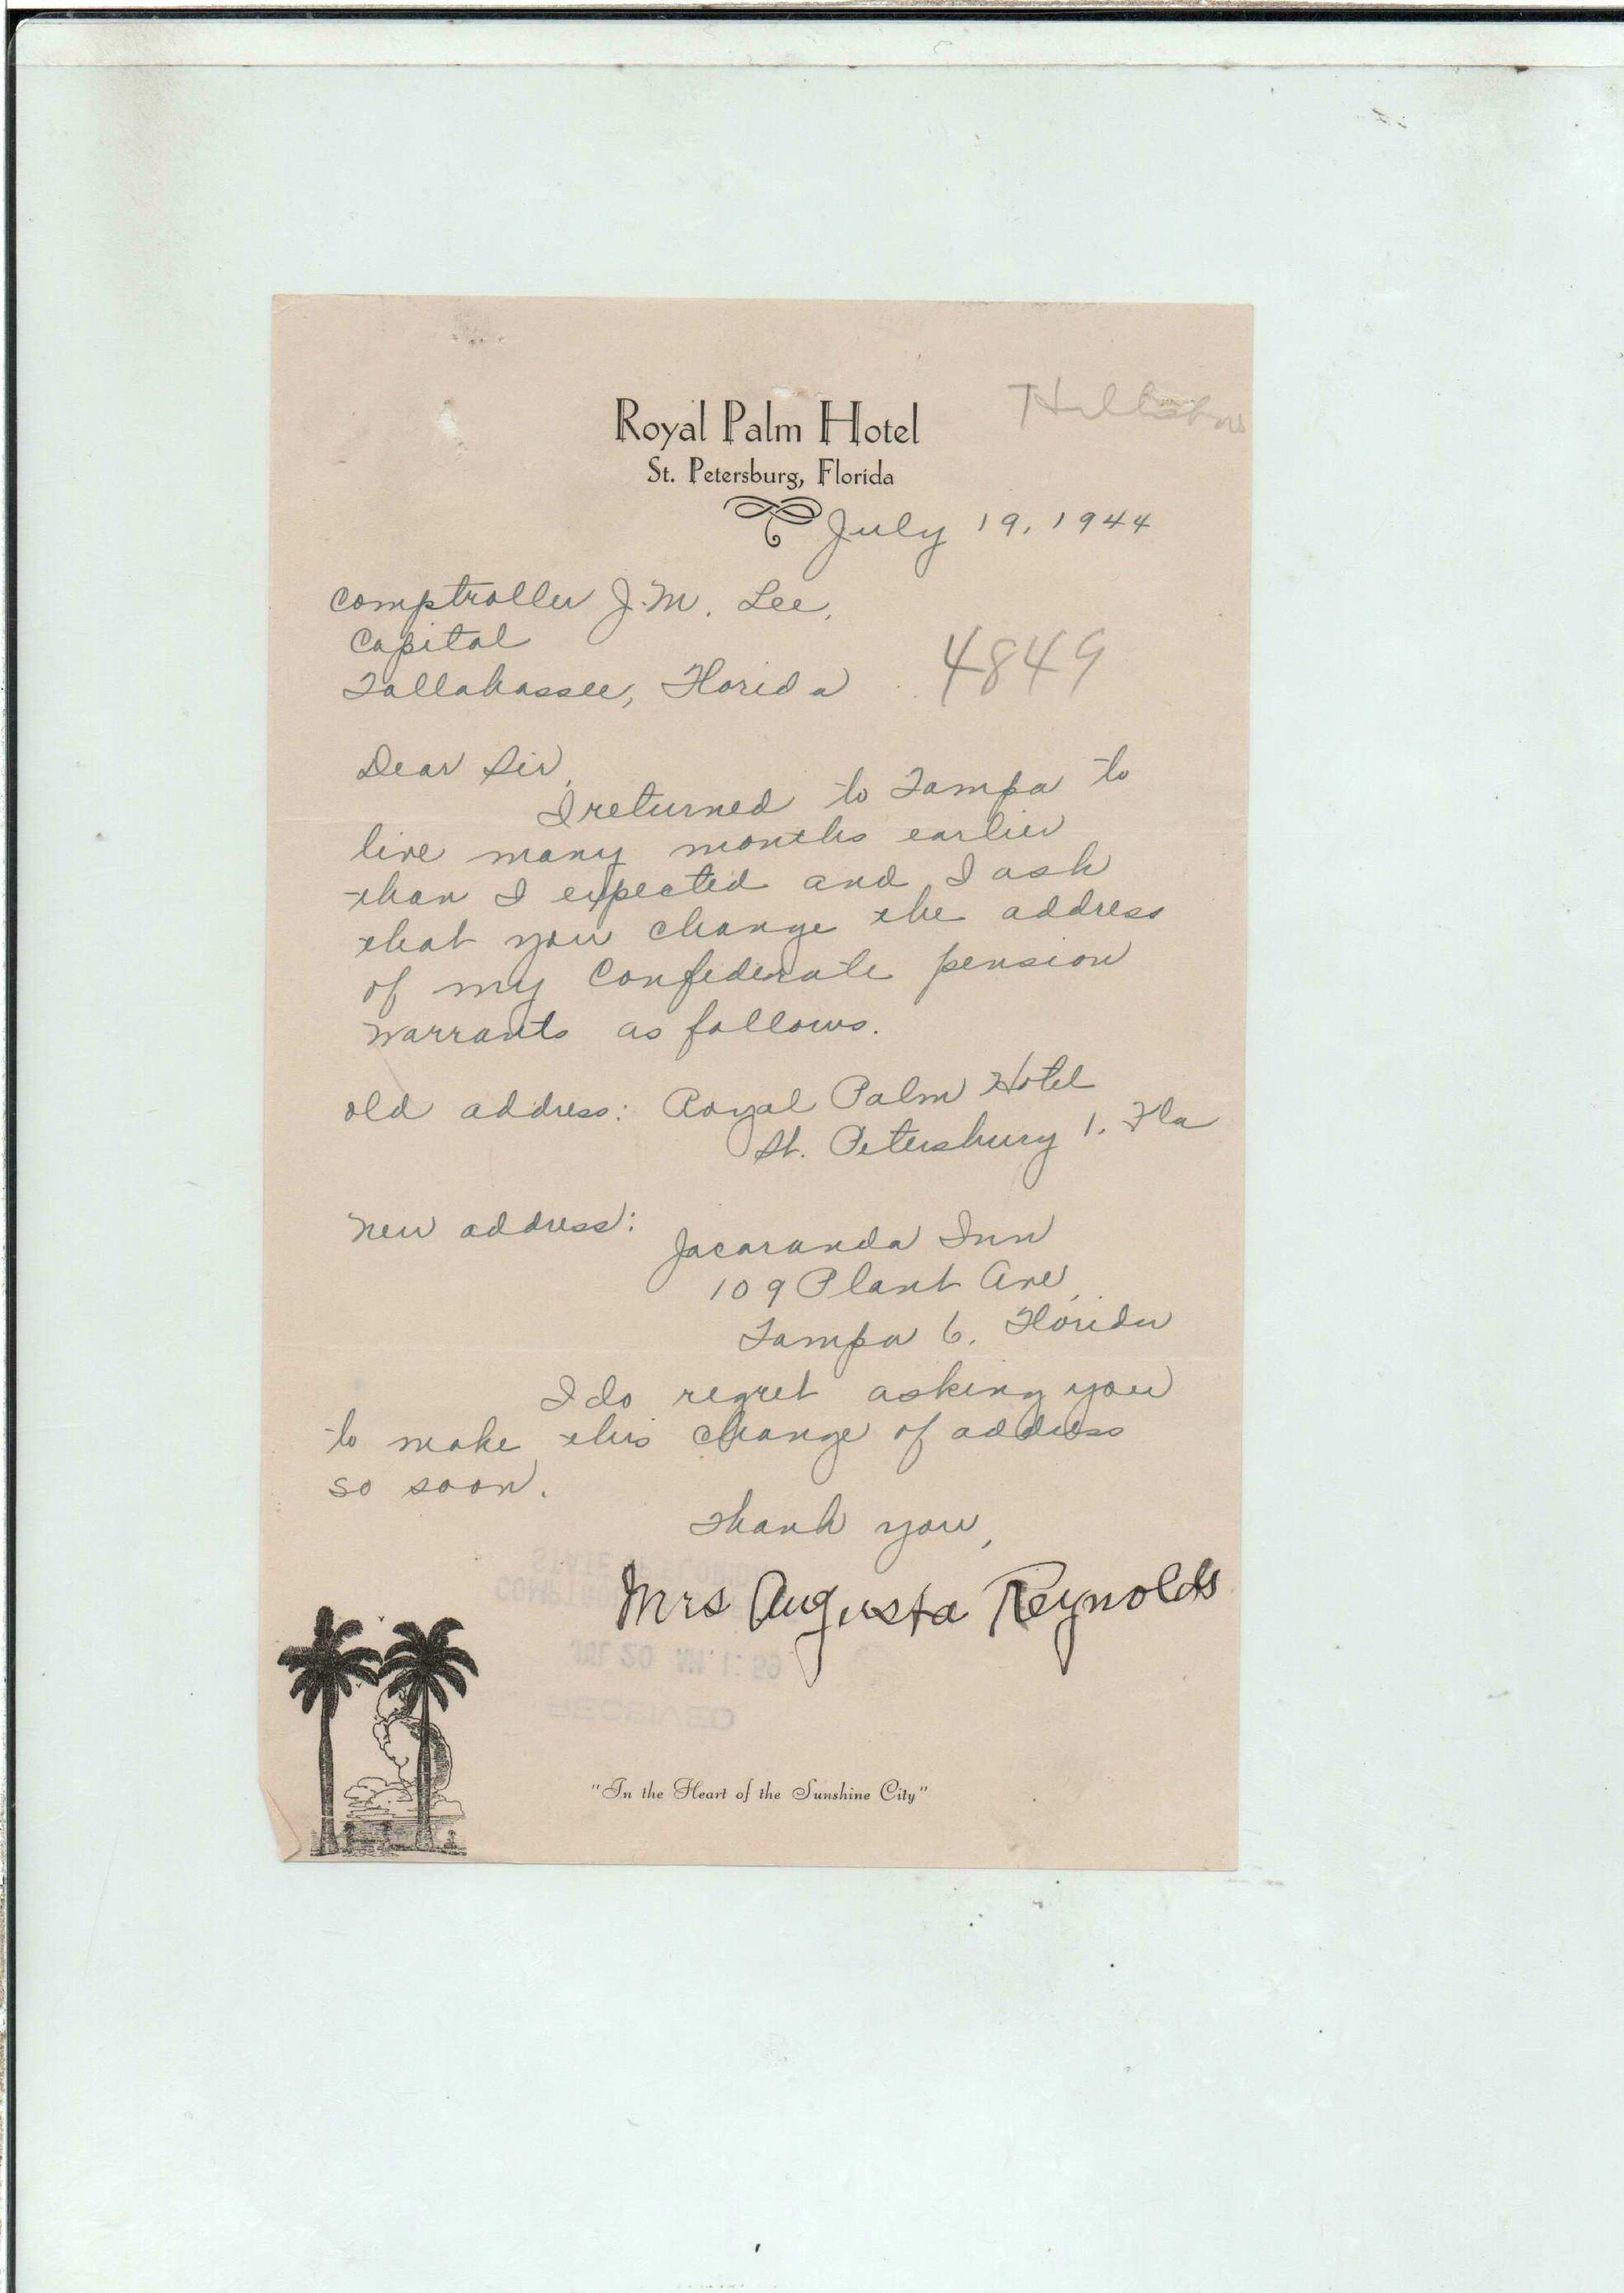 Royal Palm Hotel
St. Petersburg, Florida
July 19, 1944
Comptroller J. M. Lee,
Capital
Tallahassee, Florida
4849
Dear Sir,
I returned to Tampa to
live many months earlier
than I expected and I ask
that you change the address
of my Confederate pension
warrants as follows.
old address: Royal Palm Hotel
St. Petersburg 1. Fla
New address:
Jacaranda Inn
109 Plant Ave,
Tampa 6. Florida
I do regret asking you
to make this change of address
so soon.
Thank you,
Mrs Augusta Reynolds
RECEIVED
"In the Heart of the Sunshine City"